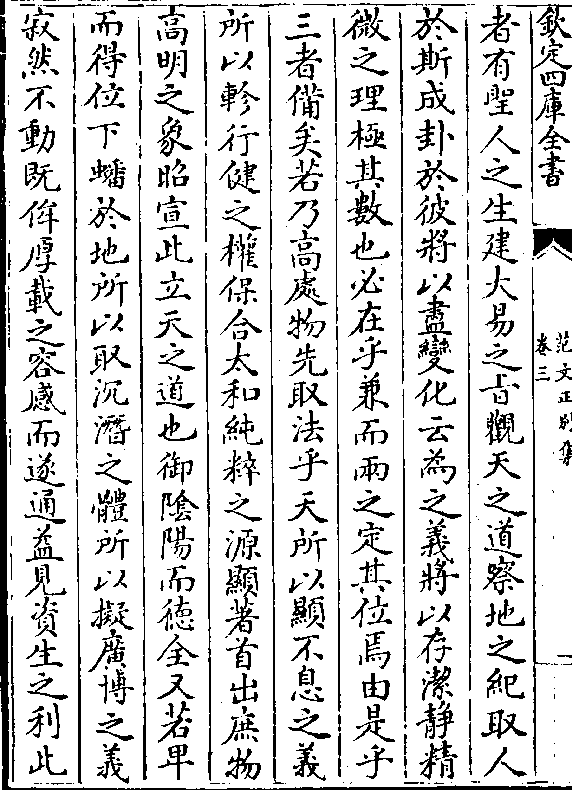 欽定四庫全書
范文正别集
卷三
者有聖人之生建大易之㫖觀天之道察地之紀取人
於斯成卦於彼將以盡變化云為之義將以存潔静精
微之理極其數也必在乎兼而兩之定其位焉由是乎
三者備矣若乃高處物先取法乎天所以顯不息之義
所以軫行健之權保合太和純粹之源顯著首出庶物
高明之象昭宣此立天之道也御隂陽而德全又若卑
而得位下蟠於地所以取沉潛之體所以擬廣博之義
寂然不動既侔厚載之容感而遂通益見資生之利此